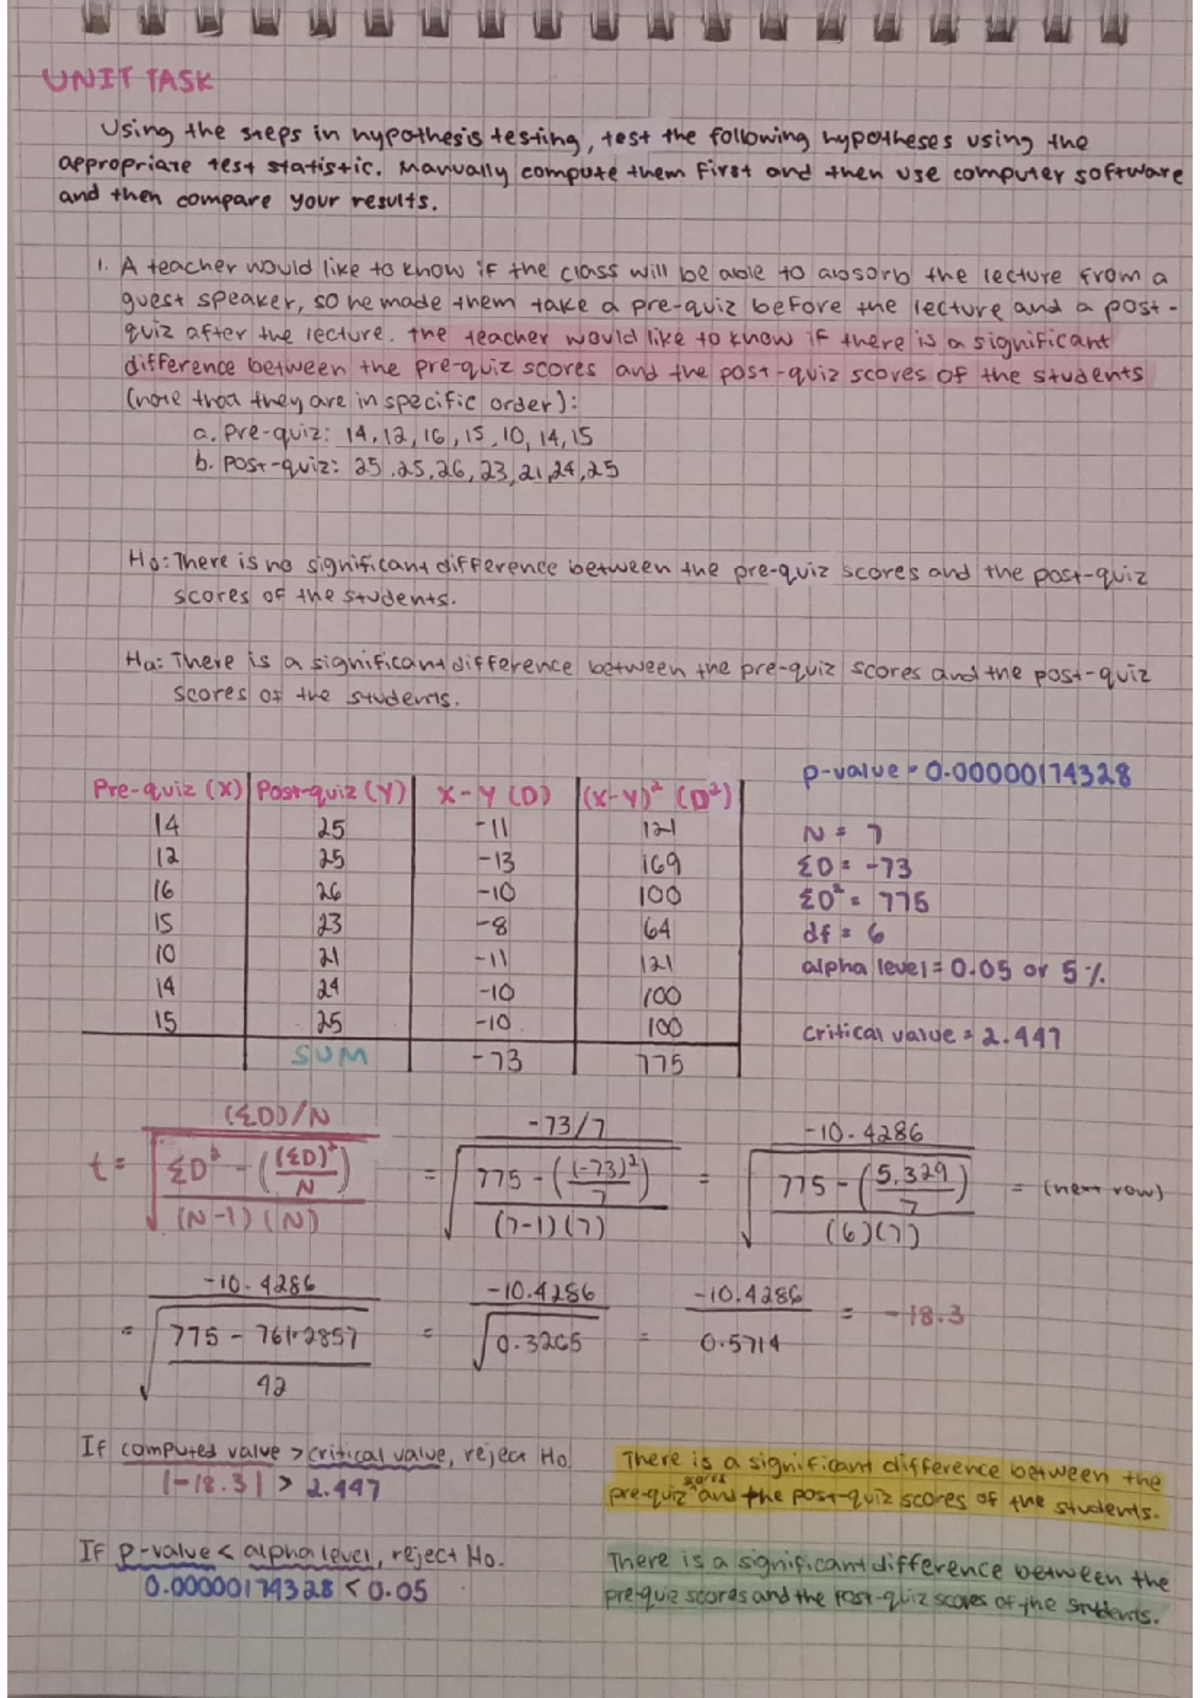 UNIT TASK
Using the steps in hypothesis testing, test the following hypotheses using the
appropriate test statistic. Manually compute them first and then use computer software
and then compare your results.
1. A teacher would like to know if the class will be able to absorb the lecture from a
guest speaker, so he made them take a pre-quiz before the lecture and a post-
quiz after the lecture. The teacher would like to know if there is a significant
difference between the pre-quiz scores and the post-quiz scores of the students
(note that they are in specific order):
a. Pre-quiz: 14, 12, 16, 15, 10, 14, 15
b. Post-quiz: 25, 25, 26, 23, 21, 24, 25
Ho: There is no significant difference between the pre-quiz scores and the post-quiz
scores of the students.
Ha: There is a significant difference between the pre-quiz scores and the post-quiz
scores of the students.
p-value = 0.00000174328
Pre-quiz (X) Post-quiz (Y) X-Y (D) (X-Y)² (D²)
14 25 -11 121
12 25 -13 169
16 26 -10 100
15 23 -8 64
10 21 -11 121
14 24 -10 100
15 25 -10 100
SUM -73 775
N = 7
ΣD = -73
ΣD² = 775
df = 6
alpha level = 0.05 or 5%
critical value = 2.447
t = (ΣD)/N / √((ΣD² - ((ΣD)²/N)) / (N-1)(N)) = -73/7 / √((775 - ((-73)²/7)) / (7-1)(7)) = -10.4286 / √((775 - (5,329/7)) / (6)(7)) = (next row)
= -10.4286 / √((775 - 761.2857) / 42) = -10.4286 / √0.3265 = -10.4286 / 0.5714 = -18.3
If computed value > critical value, reject Ho
|-18.3| > 2.447
There is a significant difference between the
pre-quiz scores and the post-quiz scores of the students.
If p-value < alpha level, reject Ho.
0.00000174328 < 0.05
There is a significant difference between the
pre-quiz scores and the post-quiz scores of the students.